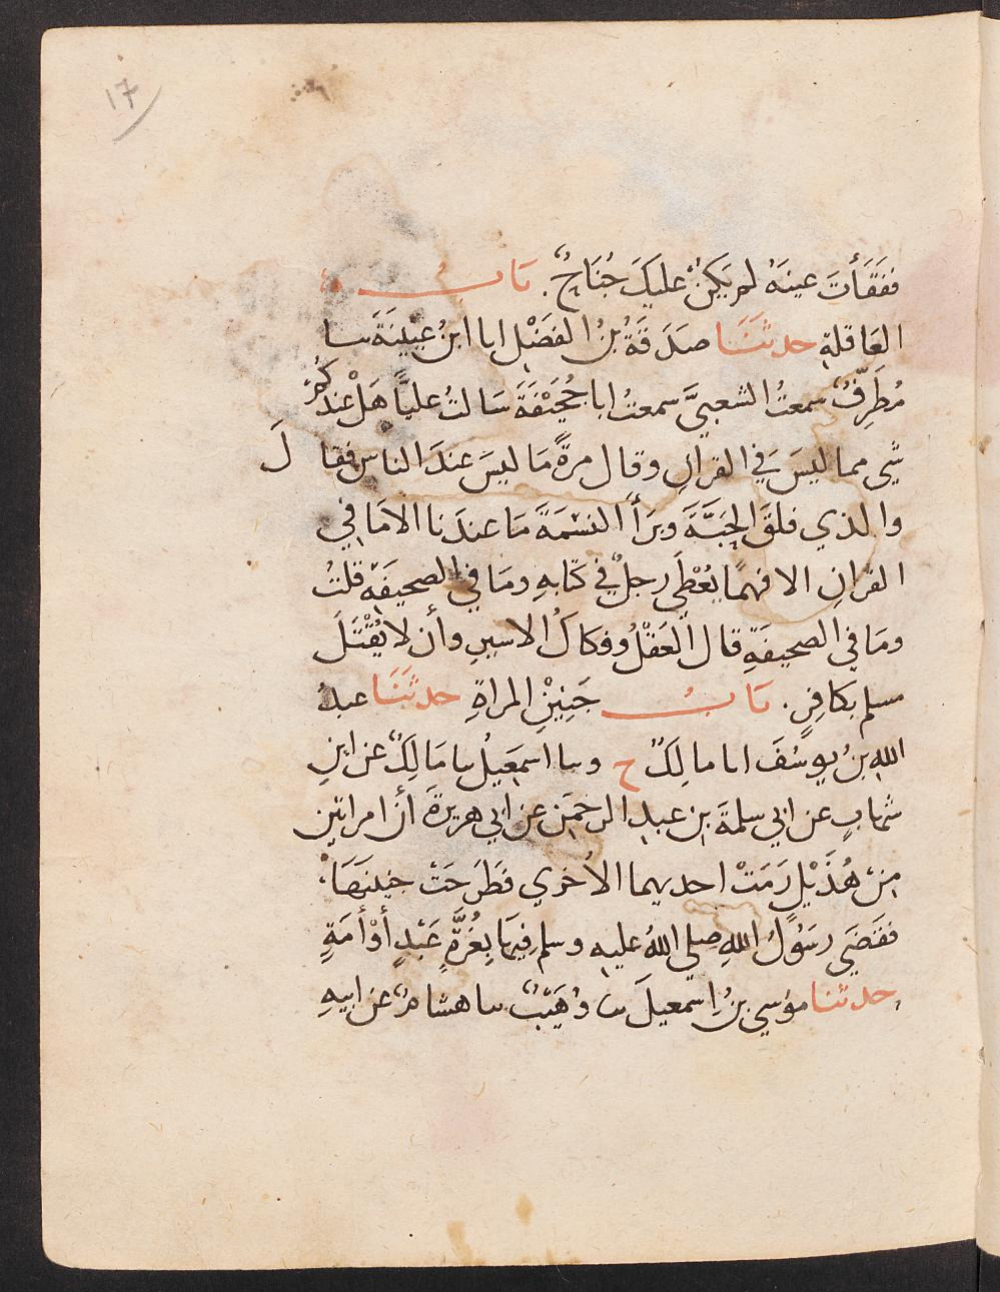 ١٦
ففَقَأتَ عينَهُ لم يَكنْ عليكَ جُنَاحٌ. بَابُ
العَاقلةِ حدثنَا صَدَقَةُ بنُ الفَضْلِ ابا ابنُ عيينَةَ سا
مُطَرِّفٌ سمعتُ الشعبيَّ سمعتُ ابا جُحَيْفَةَ سَالتُ عليًّا هَلْ عندكُمْ
شي مما ليسَ في القرانِ وقال مرةً مَا ليسَ عندَ الناسِ فقالَ
والذي فلقَ الحَبَّةَ وبَرَأَ النسْمَةَ مَا عندَنا الا مَا في
القرانِ الا فهمًا يُعْطَي رجلٌ في كتابهِ ومَا في الصحيفَةِ قلتُ
ومَا في الصحيفَةِ قال العَقْلُ وفكاكُ الاسيرِ وأن لا يُقْتَلَ
مسلم بكافِرٍ. بَابُ جَنِيْنِ المراةِ حدثنَا عبدُ
اللهِ بنُ يوسُفَ ابا مالِكٌ ح وسا اسمَعِيلُ سا مَالِكٌ عن ابنِ
شهابٍ عن ابي سلمةَ بنِ عبدِ الرحمَنِ عن ابي هريرةَ أنَّ امراتينِ
مِنْ هُذَيْلٍ رَمَتْ احديهما الاُخري فطَرحَتْ جنينَهَا
فقَضَي رسَوُلُ اللهِ صلي اللهُ عليهِ وسلم فيهَا بِغُرَّةٍ عَبْدٍ أوْ أمَةٍ
حدثنا موُسي بنُ اِسمعيلَ سا وُهَيْبٌ سا هشامٌ عن ابيهِ